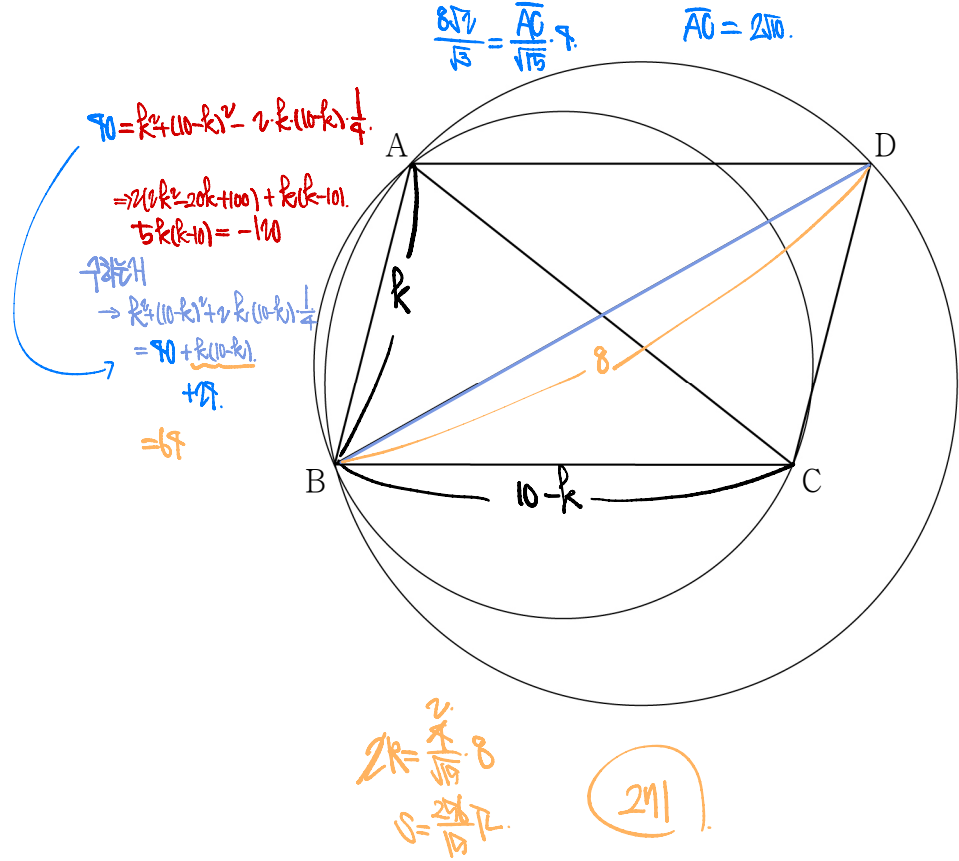 $\frac{8\sqrt{2}}{\sqrt{3}} = \frac{\overline{AC}}{\sqrt{15}} \cdot 4.$
$\overline{AC} = 2\sqrt{10}.$
$40 = k^2 + (10-k)^2 - 2 \cdot k \cdot (10-k) \cdot \frac{1}{4}.$
$\Rightarrow 2(2k^2 - 20k + 100) + k(k-10).$
$5k(k-10) = -120$
구하는거
$\rightarrow k^2 + (10-k)^2 + 2k(10-k) \cdot \frac{1}{4}$
$= 40 + k(10-k).$
$+24.$
$= 64$
A
D
k
8
B
10-k
C
2.
$2R = \frac{4}{\sqrt{15}} \cdot 8$
$S = \frac{256}{15}\pi.$
271.